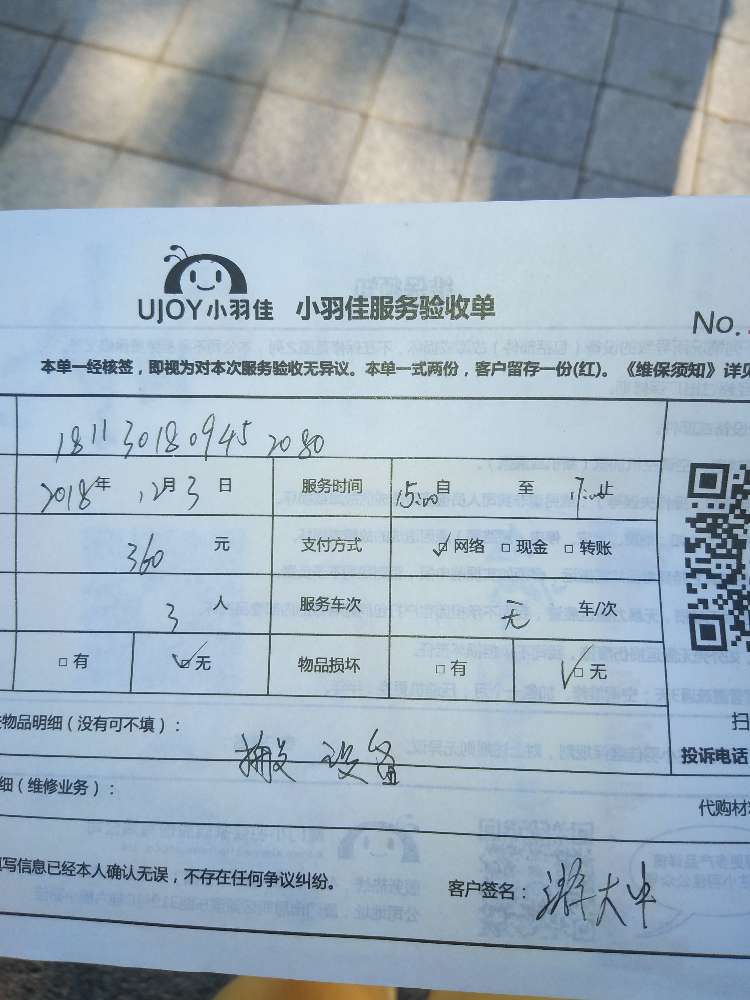 UJOY小羽佳 小羽佳服务验收单
No.
本单一经核签，即视为对本次服务验收无异议。本单一式两份，客户留存一份(红)。《维保须知》详见
181130180945 2080
2018年 12月 3 日 服务时间 15:00 自 至
360 元 支付方式 ☑ 网络 □ 现金 □ 转账
3 人 服务车次 无 车/次
□ 有 ☑ 无 物品损坏 □ 有 ☑ 无
扫
物品明细（没有可不填）： 搬 设备
投诉电话
细（维修业务）：
代购材
写信息已经本人确认无误，不存在任何争议纠纷。 客户签名： 大中